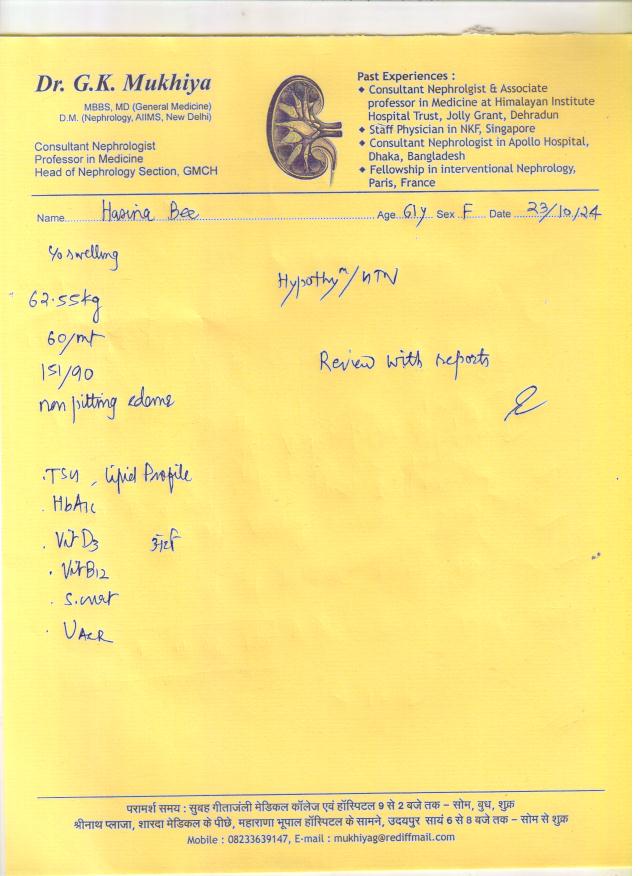 Dr. G.K. Mukhiya
MBBS, MD (General Medicine)
D.M. (Nephrology, AIIMS, New Delhi)
Consultant Nephrologist
Professor in Medicine
Head of Nephrology Section, GMCH
Past Experiences :
◆ Consultant Nephrolgist & Associate
professor in Medicine at Himalayan Institute
Hospital Trust, Jolly Grant, Dehradun
◆ Staff Physician in NKF, Singapore
◆ Consultant Nephrologist in Apollo Hospital,
Dhaka, Bangladesh
◆ Fellowship in interventional Nephrology,
Paris, France
Name Hasina Bee Age 61y Sex F Date 23/10/24
c/o swelling
Hypothym/HTN
62.55kg
60/mt
Review with reports
151/90
non pitting edema
. TSH, Lipid Profile
. HbA1c
. Vit D3
. Vit B12
. S.creat
. UACR
परामर्श समय : सुबह गीताजंली मेडिकल कॉलेज एवं हॉस्पिटल 9 से 2 बजे तक – सोम, बुध, शुक्र
श्रीनाथ प्लाजा, शारदा मेडिकल के पीछे, महाराणा भूपाल हॉस्पिटल के सामने, उदयपुर सायं 6 से 8 बजे तक – सोम से शुक्र
Mobile : 08233639147, E-mail : mukhiyag@rediffmail.com